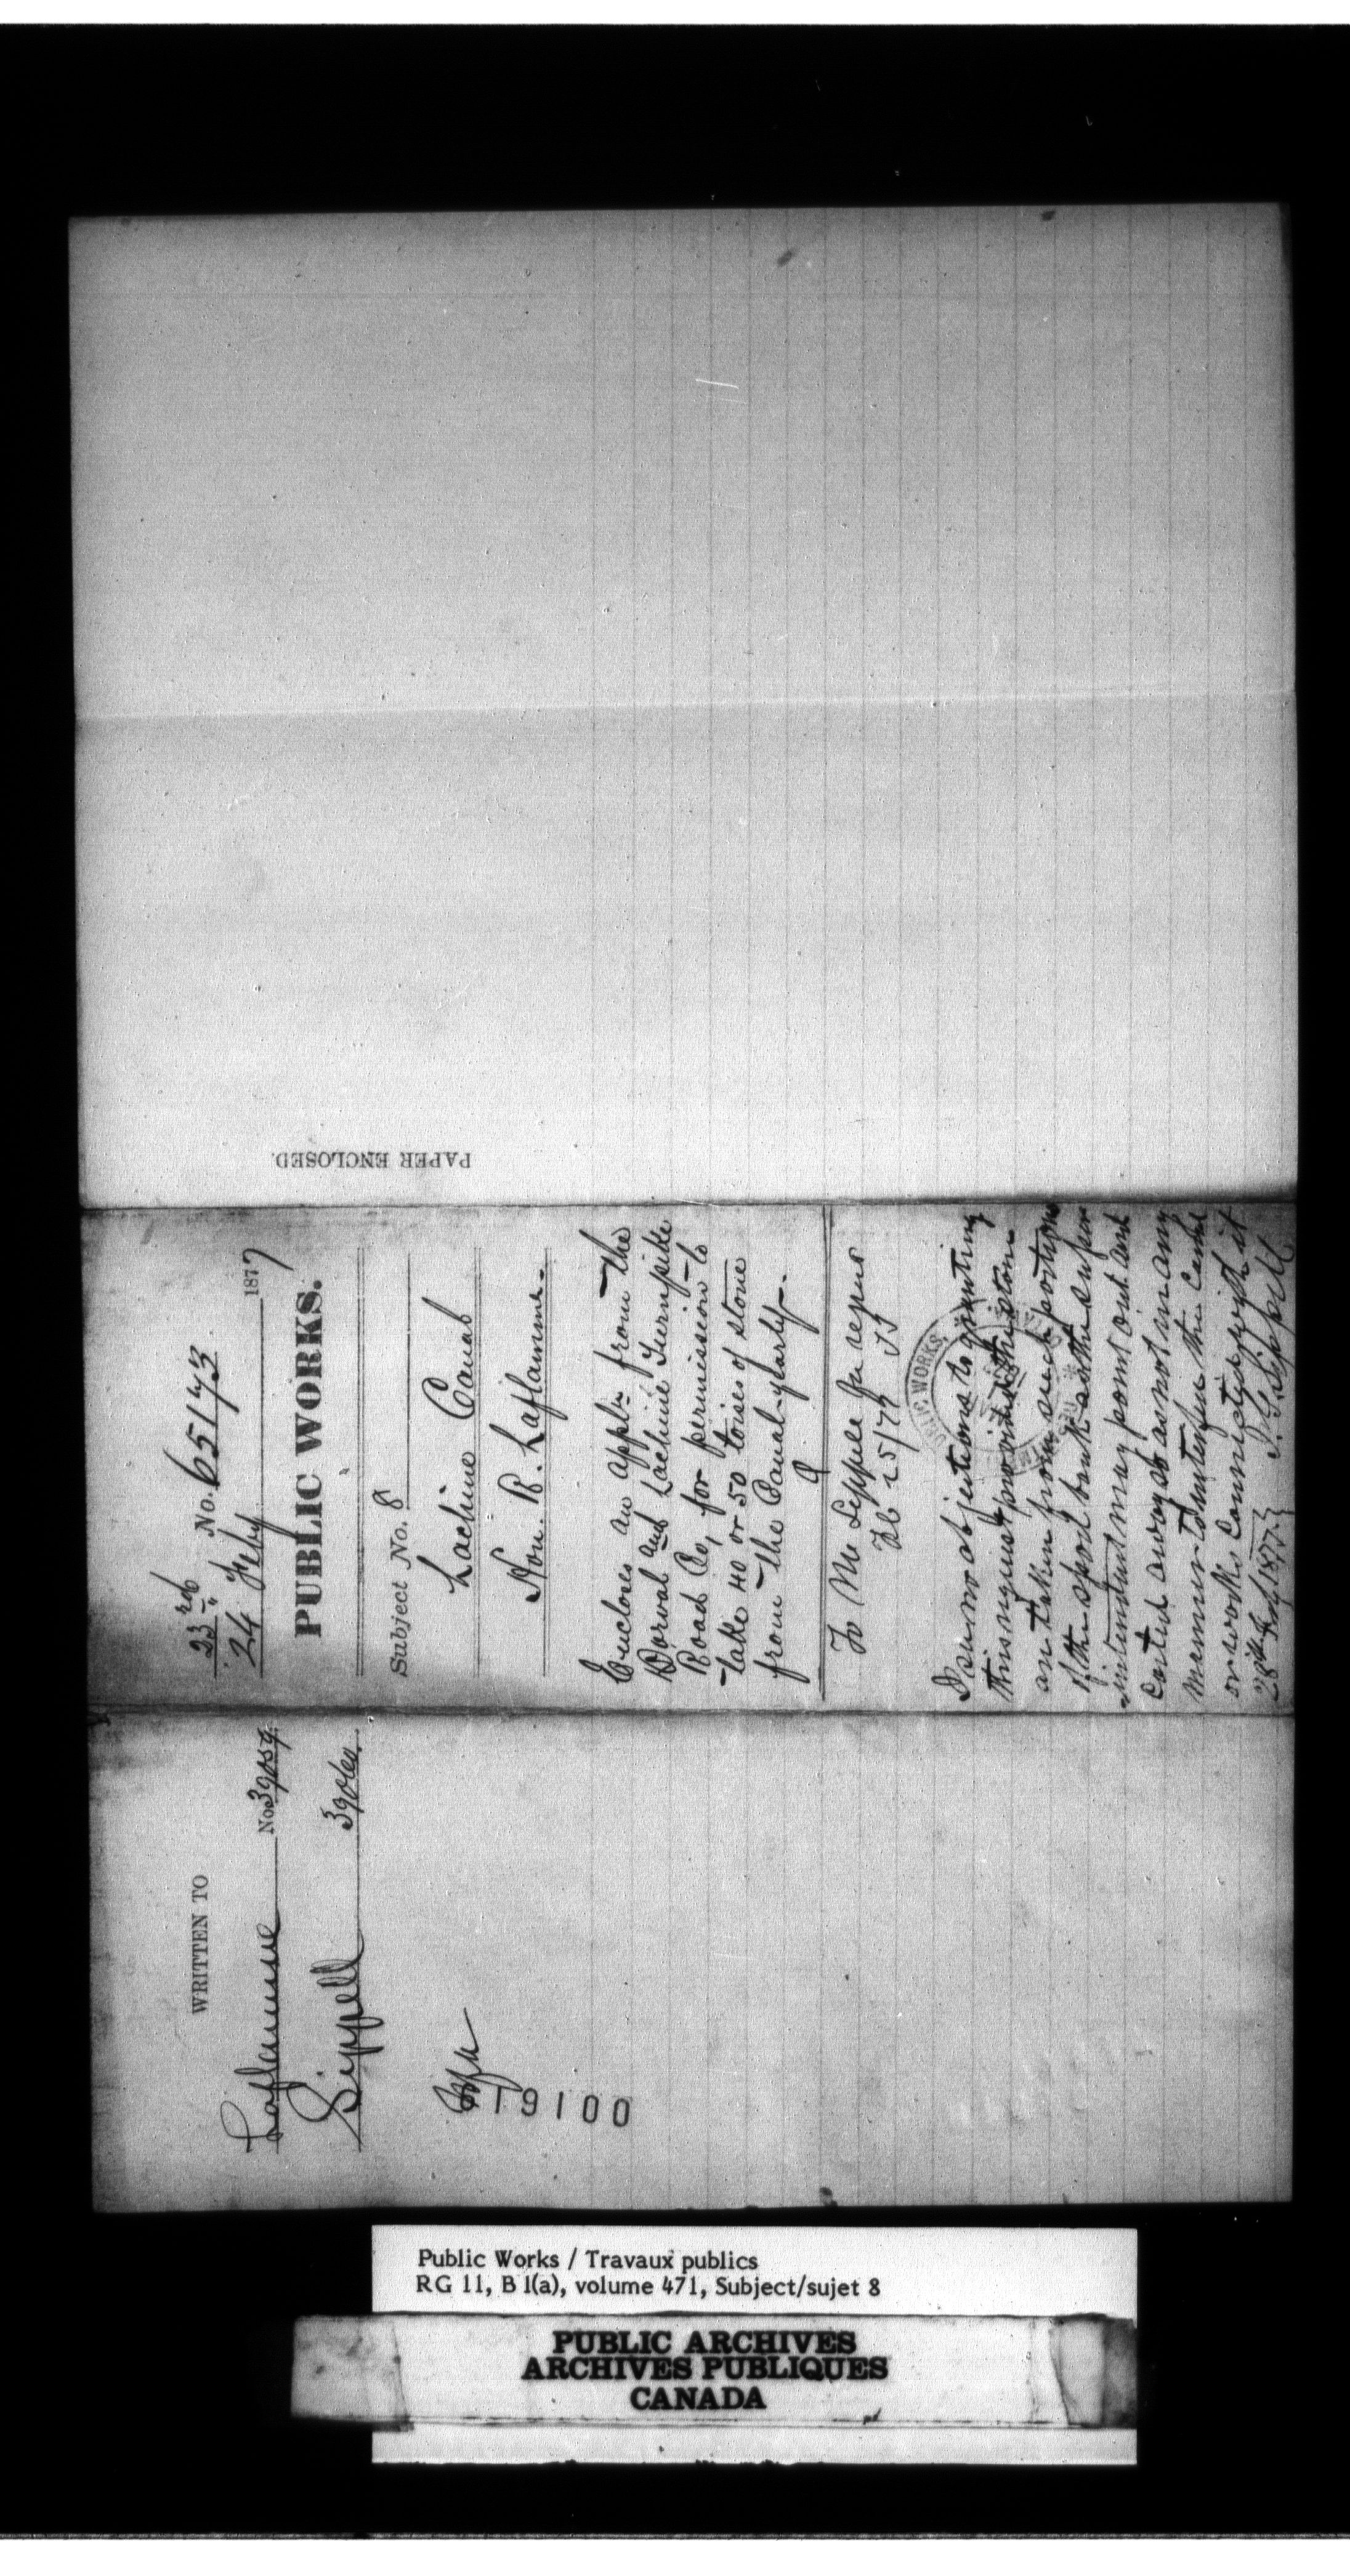 PAPER ENCLOSED.
23rd No. 65173
24 Feby 1877
PUBLIC WORKS.
Subject No. 8
Lachine Canal
Hon. R. Laflamme.
Encloses an appln from the
Dorval and Lachine Turnpike
Road Co, for permission to
take 40 or 50 toises of stone
from the Canal yearly.
To Mr Sippell for report
Feb 25/77
PUBLIC WORKS
I see no objections to granting
this request provided the stone
are taken from such portions
of the spoil bank as the super
intendent may point out and
carted away so as not in any
manner to interfere the Canal
or works Connected with it
28th Feby 1877 J. G. Sippell
WRITTEN TO
Laflamme No. 39059.
Sippell 39060.
19100
Public Works / Travaux publics
RG 11, B 1(a), volume 471, Subject/sujet 8
PUBLIC ARCHIVES
ARCHIVES PUBLIQUES
CANADA